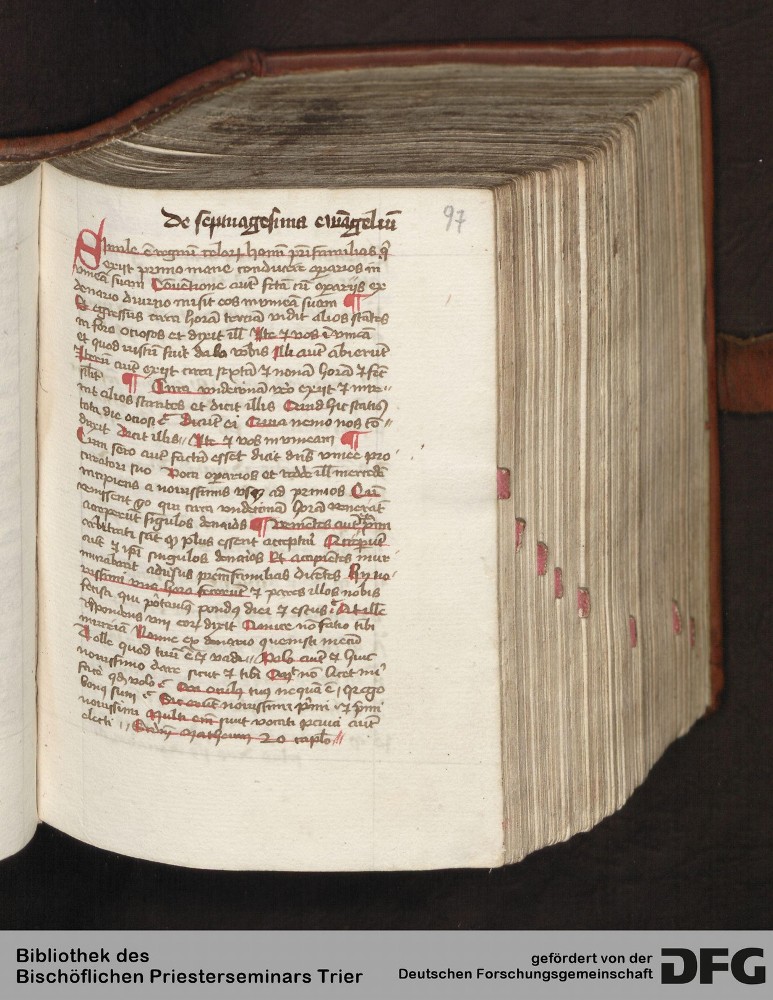 De septuagesima ewāgeliū
97
Simile ē regnū celorꝫ homī p̄rifamilias q̄
exijt primo mane conducere oparios in
vineā suam Conuētione aut̄ fc̄ta cū oparijs ex
denario diurno misit eos in vineā suam
Et egressus circa horā terciam vidit alios stātes
in foro ociosos et dixit ill̄ Ite ⁊ vos ī vineā
et quod iustū fuit dabo vobis Illi aut̄ abierūt
Iterū aut̄ exijt circa sextā ⁊ nonā horā ⁊ fec̄
silr̄ Circa vndecimā v̄o exijt ⁊ īue
nit alios stantes et dicit illis Quid hic statis
tota die ociosi Dicūt ei Quia nemo nos cō
duxit Dicit illis Ite ⁊ vos in vineam
Cum sero aut̄ factū esset dicit dn̄s vinee pro
curatori suo Voca oparios et redde ill̄ mercedē
incipiens a nouissimis vsqꝫ ad primos Cū
venissent go qui circa vndecimā horā venerāt
acceperūt singulos denarios Venientes aut̄ ⁊ p̄mi
arbitrati sūt qꝫ plus essent accepturi Acceperūt
aut̄ ⁊ ip̄i singulos denarios Et accipientes mur
murabant aduersus patremfamilias dicētes Hij no
uissimi vna hora fecerunt ⁊ pares illos nobis
fecisti qui portauimꝰ pondꝰ diei ⁊ estus At ille
rn̄pondens vni eorꝫ dixit Amice nō facio tibi
iniuriā Nonne ex denario quenisti mecū
Tolle quod tuū ē ⁊ vade Volo aut̄ ⁊ huic
nouissimo dare sicut ⁊ tibi Aut nō licet mi
facē qd̄ volo An oculus tuꝰ nequā ē q̄ ego
bonꝰ sum Sic erūt nouissimi p̄mi ⁊ p̄mi
nouissimi Multi em̄ sunt vocati pauci aut̄
electi Matheum 20 caplo
Bibliothek des
Bischöflichen Priesterseminars Trier
gefördert von der
Deutschen Forschungsgemeinschaft
DFG